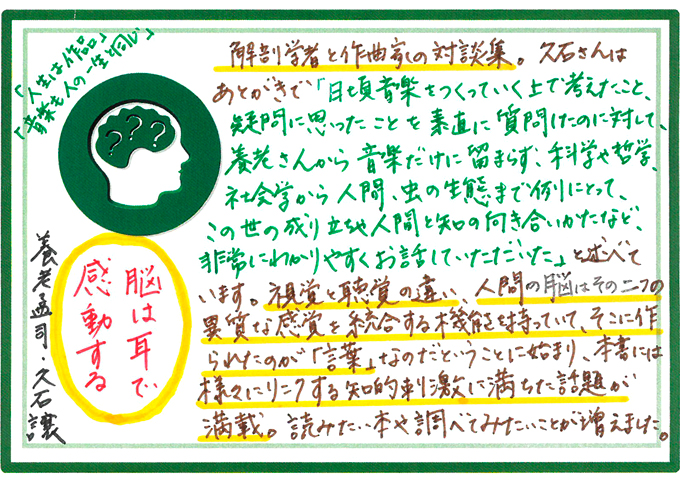 「人生は作品」
「音楽も人の一生と同じ」
解剖学者と作曲家の対談集。久石さんは
あとがきで「日頃音楽をつくっていく上で考えたこと、
疑問に思ったことを素直に質問したのに対して、
養老さんから音楽だけに留まらず、科学や哲学、
社会学から人間、虫の生態まで例にとって、
この世の成り立ちや人間と知の向き合いかたなど、
非常にわかりやすくお話していただいた」と述べて
います。視覚と聴覚の違い、人間の脳はその二つの
異質な感覚を統合する機能を持っていて、そこに作
られたのが「言葉」なのだということに始まり、本書には
様々にリンクする知的刺激に満ちた話題が
満載。読みたい本や調べてみたいことが増えました。
脳は耳で
感動する
養老孟司・久石譲